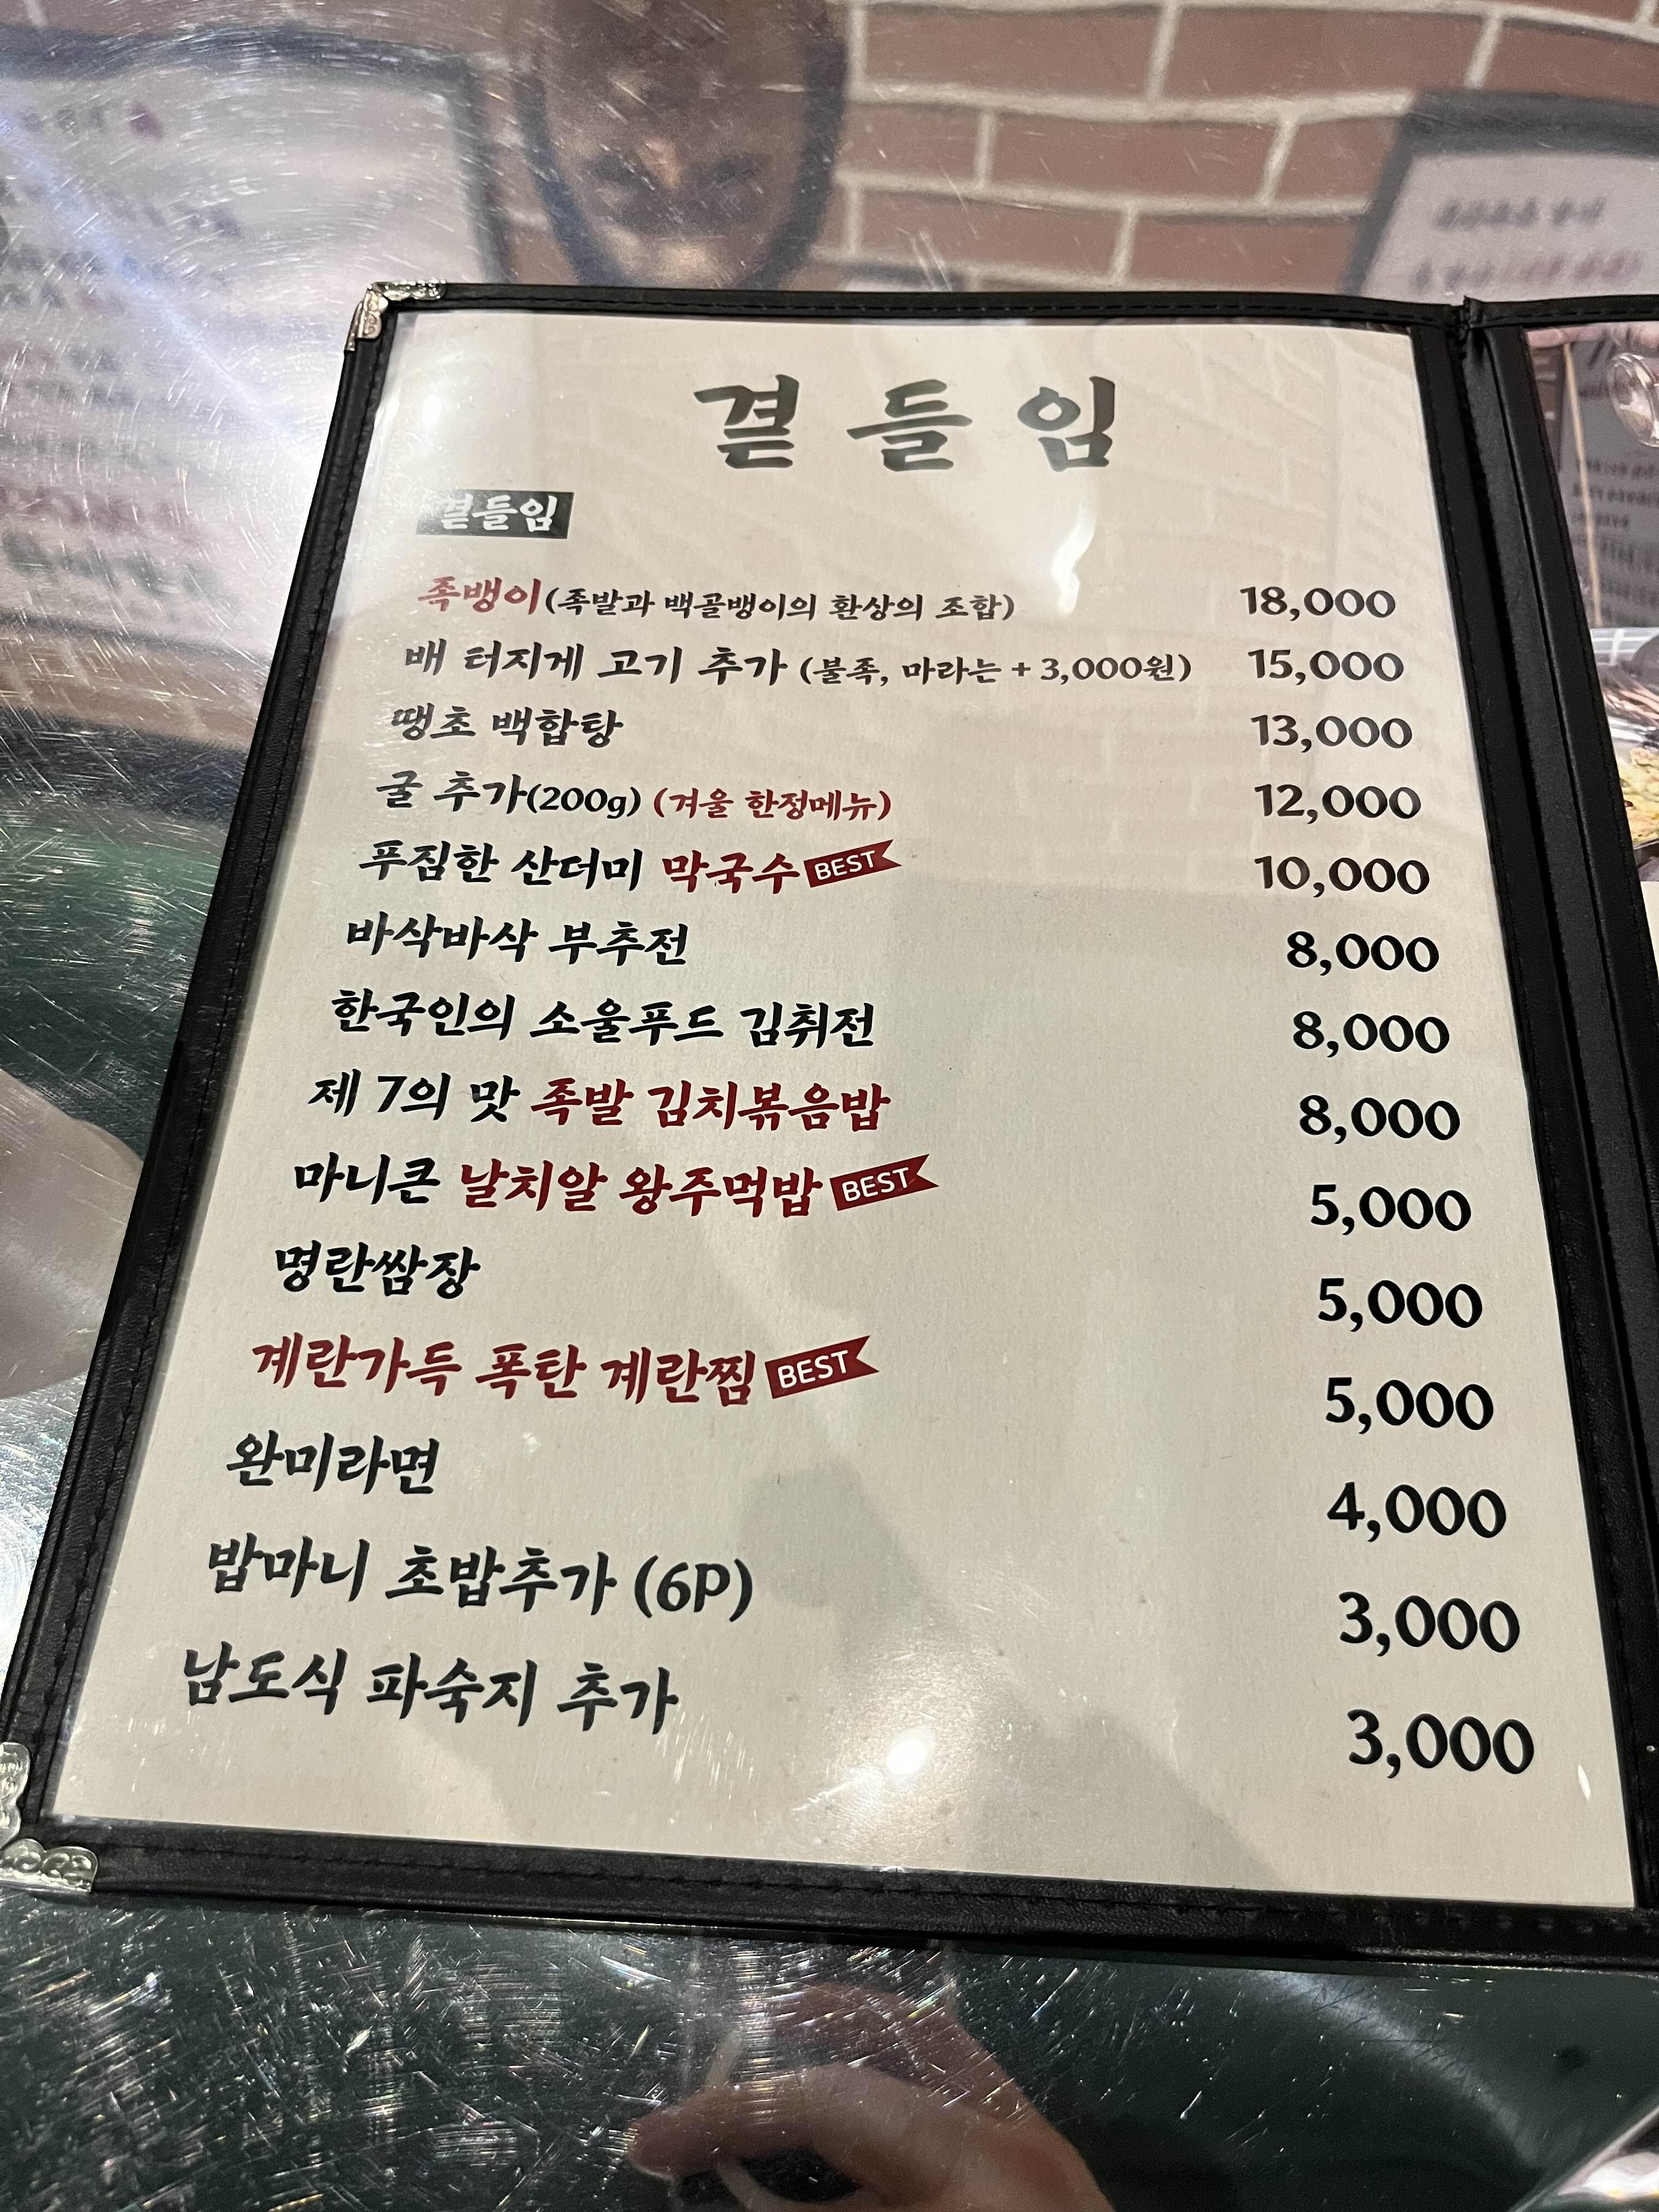 곁들임
곁들임
족뱅이(족발과 백골뱅이의 환상의 조합) 18,000
배 터지게 고기 추가 (불족, 마라는 + 3,000원) 15,000
땡초 백합탕 13,000
굴 추가(200g) (겨울 한정메뉴) 12,000
푸짐한 산더미 막국수 BEST 10,000
바삭바삭 부추전 8,000
한국인의 소울푸드 김취전 8,000
제 7의 맛 족발 김치볶음밥 8,000
마니큰 날치알 왕주먹밥 BEST 5,000
명란쌈장 5,000
계란가득 폭탄 계란찜 BEST 5,000
완미라면 4,000
밥마니 초밥추가 (6P) 3,000
남도식 파숙지 추가 3,000